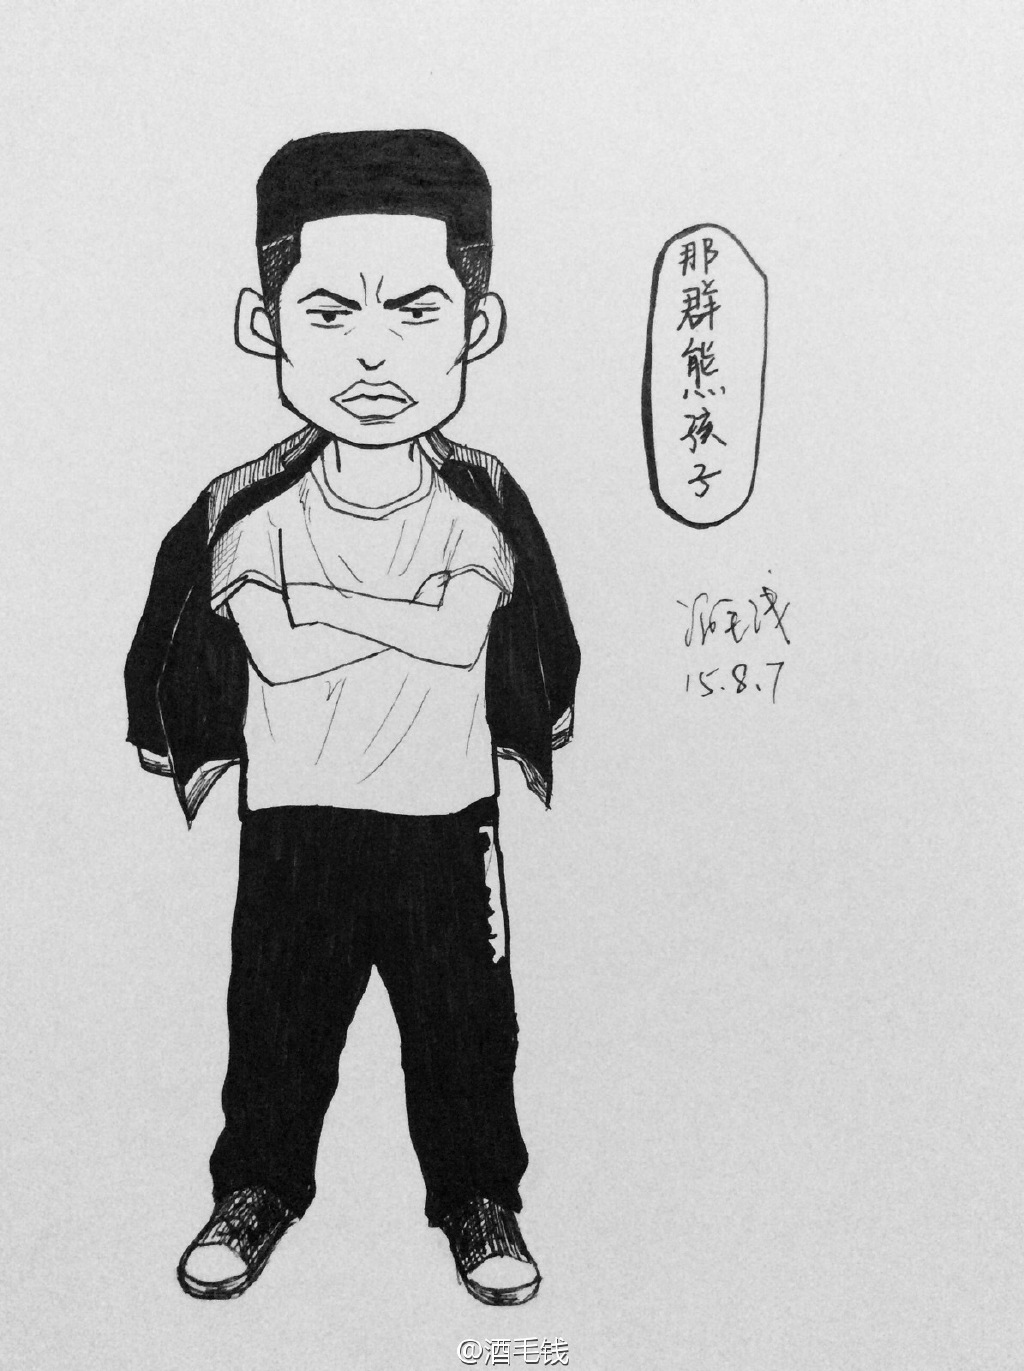 那群熊孩子
酒毛钱
15.8.7
@酒毛钱